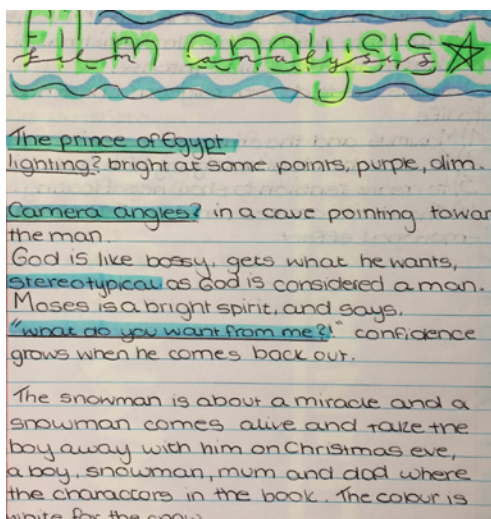 Film analysis
film analysis
The prince of Egypt
lighting? bright at some points, purple, dim.
Camera angles? in a cave pointing towar
the man.
God is like bossy, gets what he wants,
stereotypical as God is considered a man.
Moses is a bright spirit, and says.
"what do you want from me?!" confidence
grows when he comes back out.
The snowman is about a miracle and a
snowman comes alive and take the
boy away with him on Christmas eve,
a boy, snowman, mum and dad where
the charactors in the book. The colour is
white for the snow